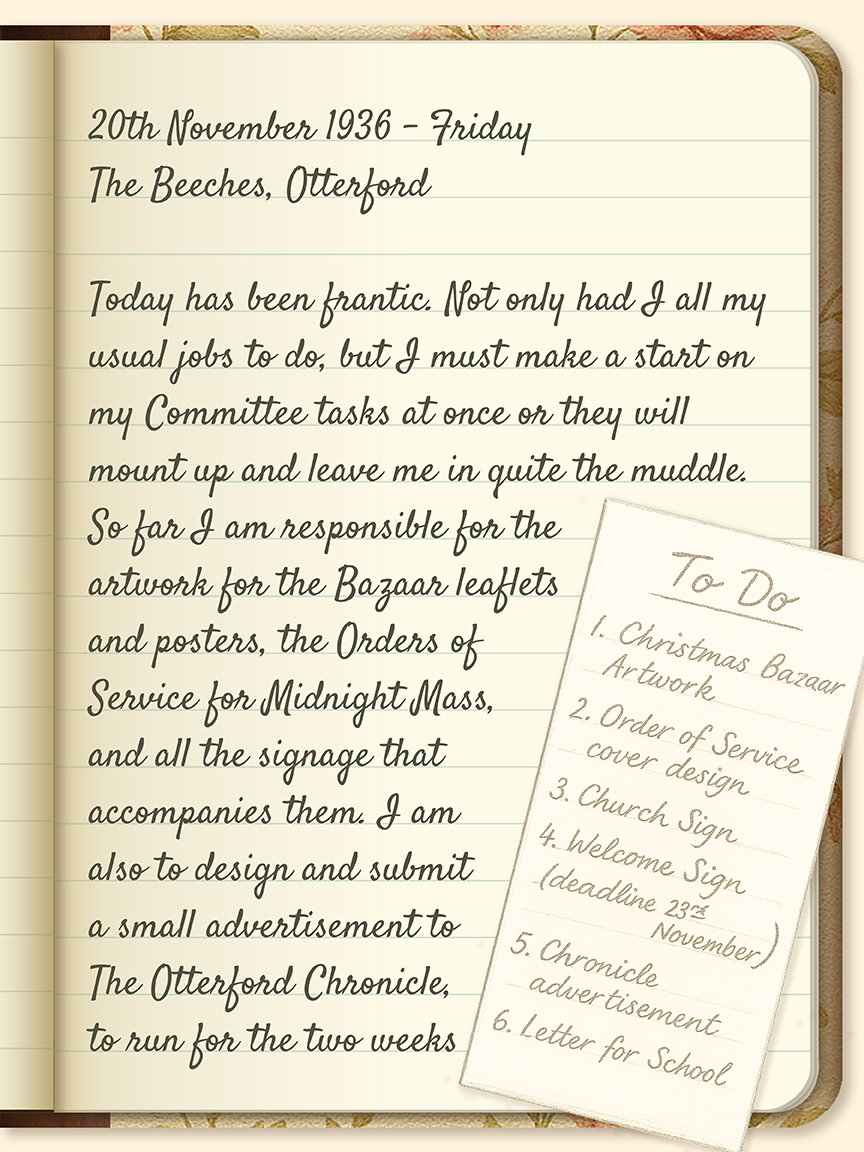 20th November 1936 – Friday
The Beeches, Otterford
Today has been frantic. Not only had I all my
usual jobs to do, but I must make a start on
my Committee tasks at once or they will
mount up and leave me in quite the muddle.
So far I am responsible for the
artwork for the Bazaar leaflets
and posters, the Orders of
Service for Midnight Mass,
and all the signage that
accompanies them. I am
also to design and submit
a small advertisement to
The Otterford Chronicle,
to run for the two weeks
To Do
1. Christmas Bazaar
Artwork
2. Order of Service
cover design
3. Church Sign
4. Welcome Sign
(deadline 23rd
November)
5. Chronicle
advertisement
6. Letter for School